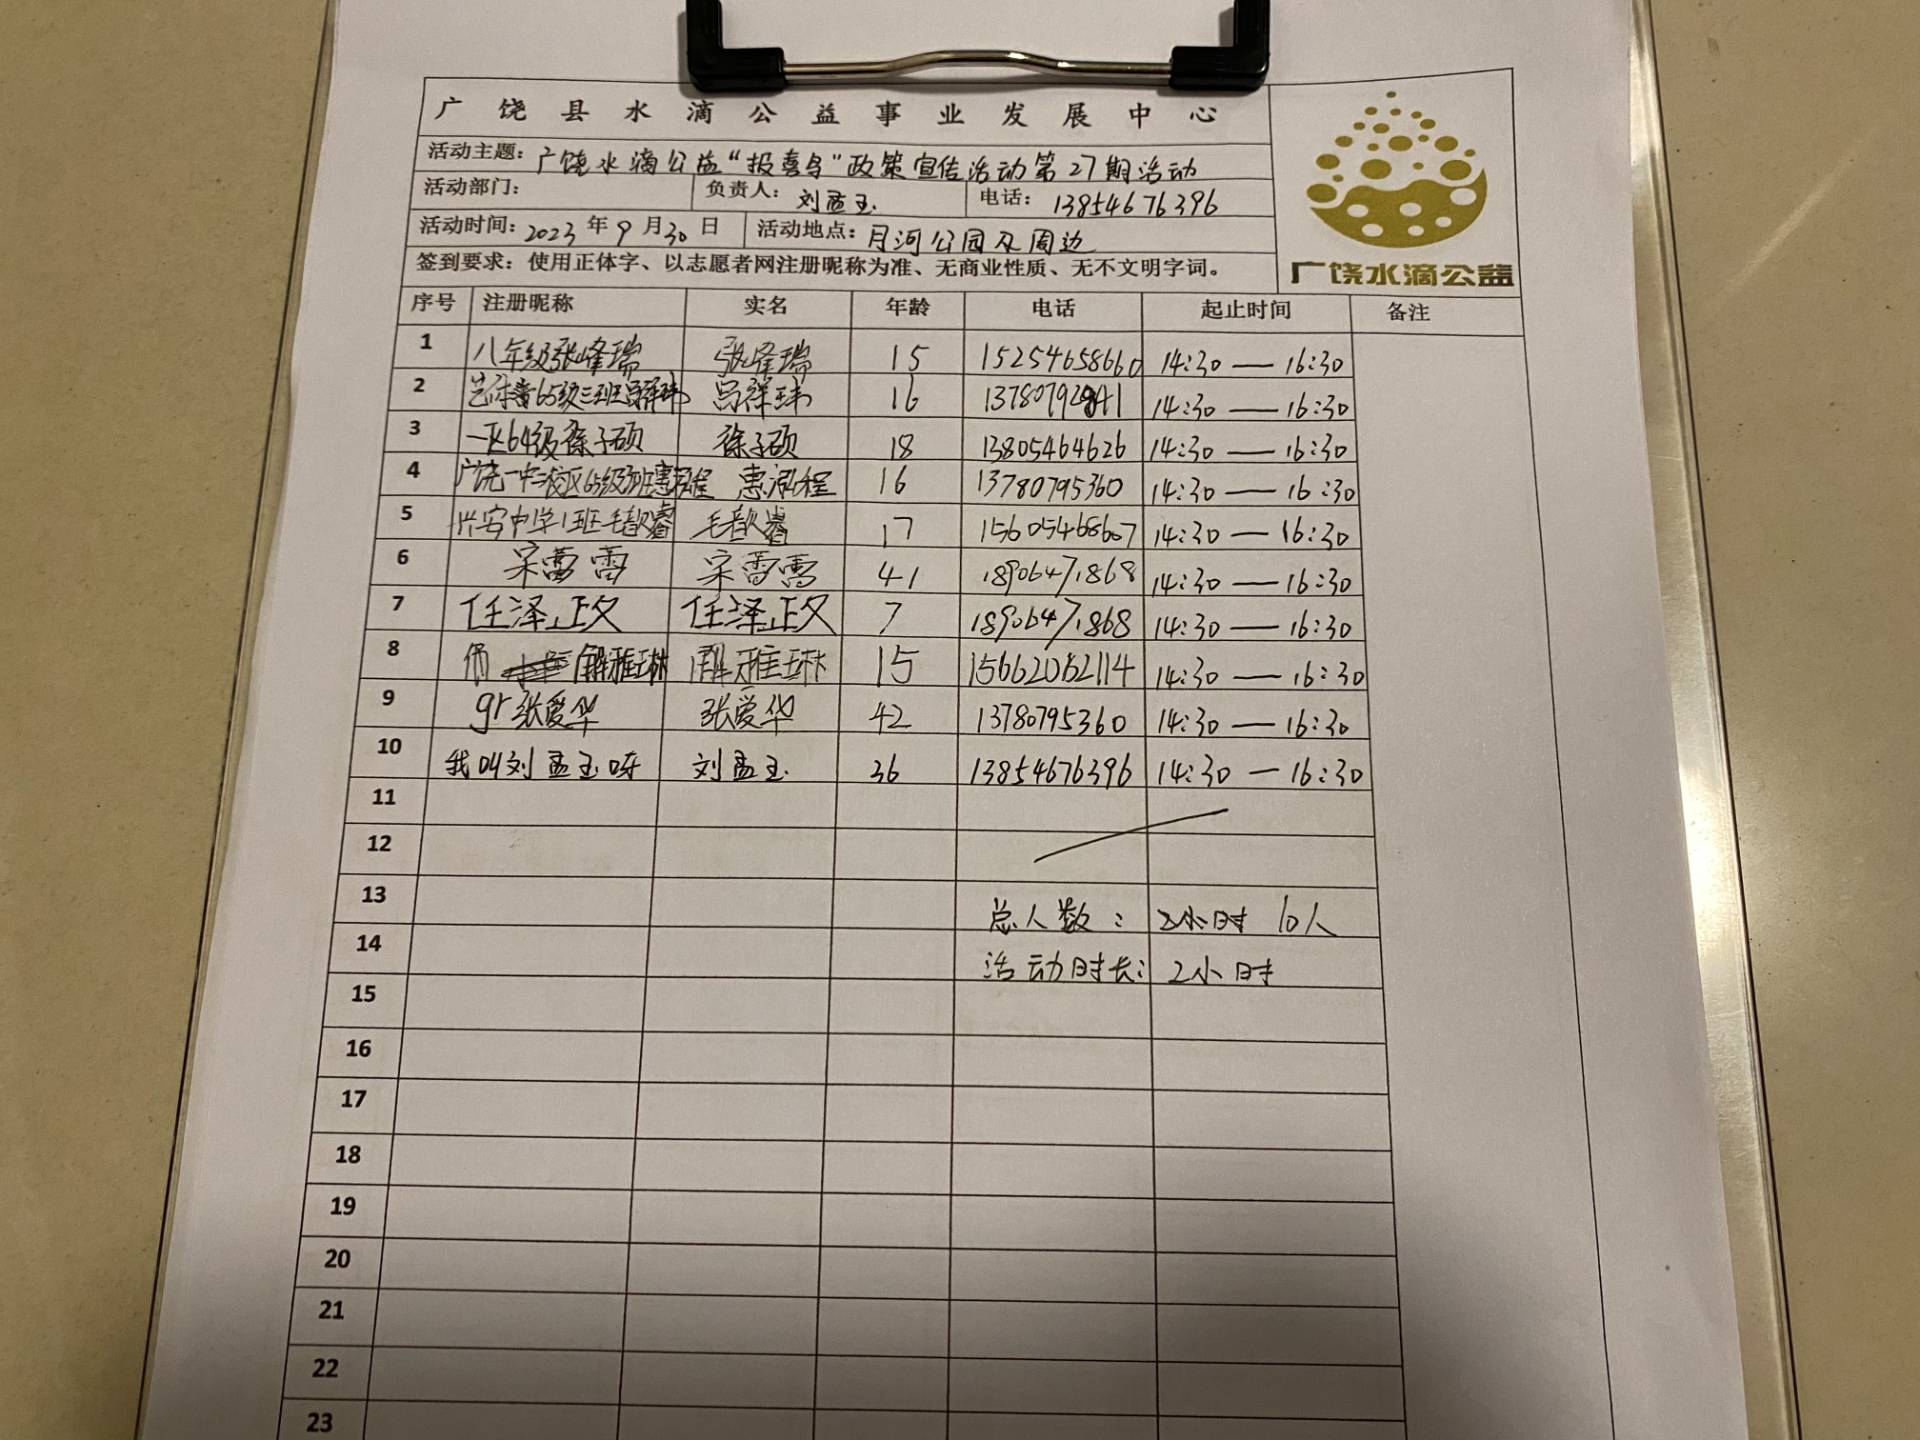 广饶县水滴公益事业发展中心
活动主题：广饶水滴公益“报喜鸟”政策宣传活动第27期活动
活动部门： 负责人：刘孟玉 电话：13854676396
活动时间：2023年9月30日 活动地点：月河公园及周边
签到要求：使用正体字、以志愿者网注册昵称为准、无商业性质、无不文明字词。
广饶水滴公益
序号 注册昵称 实名 年龄 电话 起止时间 备注
1 八年级张峰瑞 张峰瑞 15 15254658660 14:30——16:30
2 65级三班吕祥玮 吕祥玮 16 14:30——16:30
3 一区64级徐子硕 徐子硕 18 13805464626 14:30——16:30
4 广饶一中二校区65级 惠泓程 惠泓程 16 13780795360 14:30——16:30
5 兴安中学1班毛歆睿 毛歆睿 17 15605468607 14:30——16:30
6 宋蕾蕾 宋蕾蕾 41 18906471868 14:30——16:30
7 任泽正文 任泽正文 7 18906471868 14:30——16:30
8 解雅琳 解雅琳 15 15662062114 14:30——16:30
9 gr张爱华 张爱华 42 13780795360 14:30——16:30
10 我叫刘孟玉呀 刘孟玉 36 13854676396 14:30—16:30
11
12
13 总人数： 2小时 10人
14 活动时长： 2小时
15
16
17
18
19
20
21
22
23